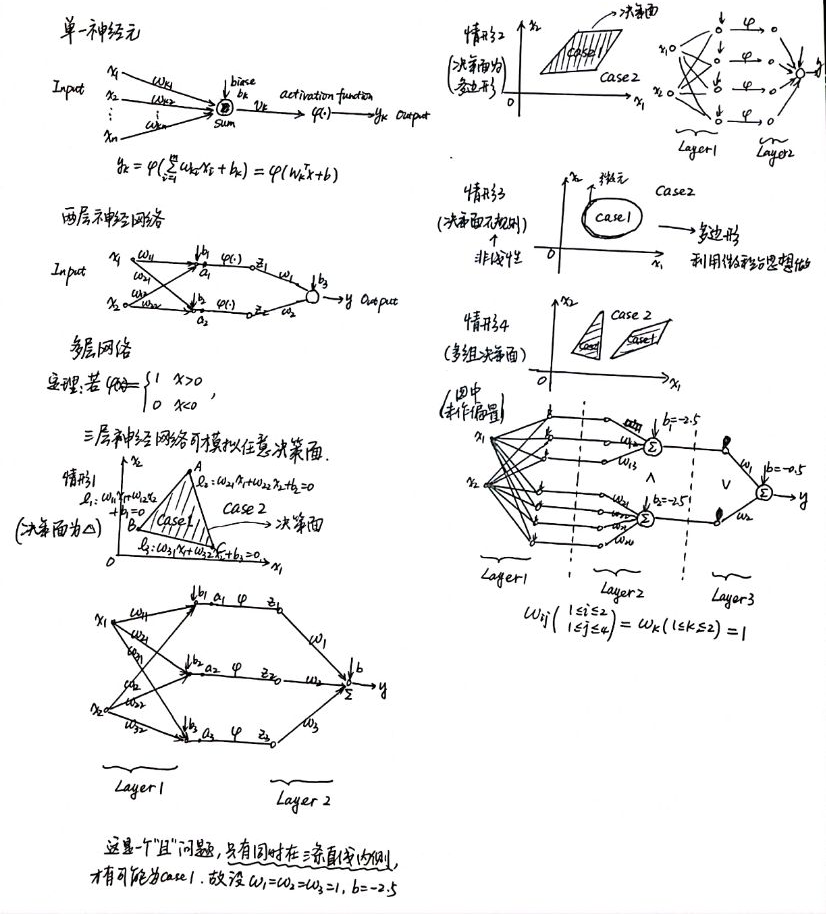 单一神经元
Input
x₁
x₂
⋮
xₙ
ωk₁
ωk₂
⋮
ωkn
biase
bk
sum
νk
activation function
φ(·)
yk Output
yk = φ(∑ωkixi + bk) = φ(ωkᵀx+b)
两层神经网络
Input
x₁
x₂
ω₁₁
ω₂₁
ω₁₂
ω₂₂
b₁
a₁
φ(·)
z₁
b₂
a₂
φ(·)
z₂
ω₁
ω₂
b₃
y Output
多层网络
定理:若φ(x)={1 x>0
0 x<0 ,
三层神经网络可模拟任意决策面.
情形1
(决策面为△)
x₂
A
l₂: ω₂₁x₁+ω₂₂x₂+b₂=0
l₁: ω₁₁x₁+ω₁₂x₂
+b₁=0
case1
case 2
决策面
B
C
l₃: ω₃₁x₁+ω₃₂x₂+b₃=0
O
x₁
x₁
x₂
ω₁₁
ω₂₁
ω₃₁
ω₁₂
ω₂₂
ω₃₂
b₁ a₁ φ z₁
b₂ a₂ φ z₂
b₃ a₃ φ z₃
ω₁
ω₂
ω₃
b
Σ
y
Layer1
Layer 2
这是一个"且"问题,只有同时在三条直线内侧,
才有可能为case1. 故设 ω₁=ω₂=ω₃=1, b=-2.5
情形2
(决策面为
多边形)
x₂
决策面
case1
case2
O
x₁
x₁
x₂
φ
φ
φ
φ
y
Layer1
Layer2
情形3
(决策面不规则)
↑
非线性
x₂
微元
case1
case2
O
x₁
多边形
利用微积分思想做
情形4
(多组决策面)
x₂
case 2
case1
case1
O
x₁
(图中
未作偏置)
x₁
x₂
ω₁₂
ω₁₃
b₁=-2.5
Σ
∧
ω₂₁
ω₂₂
ω₂₃
ω₂₄
b₂=-2.5
Σ
∨
ω₁
ω₂
b=-0.5
Σ
y
Layer1
Layer2
Layer3
ωij(1≤i≤2
1≤j≤4) = ωk(1≤k≤2) = 1